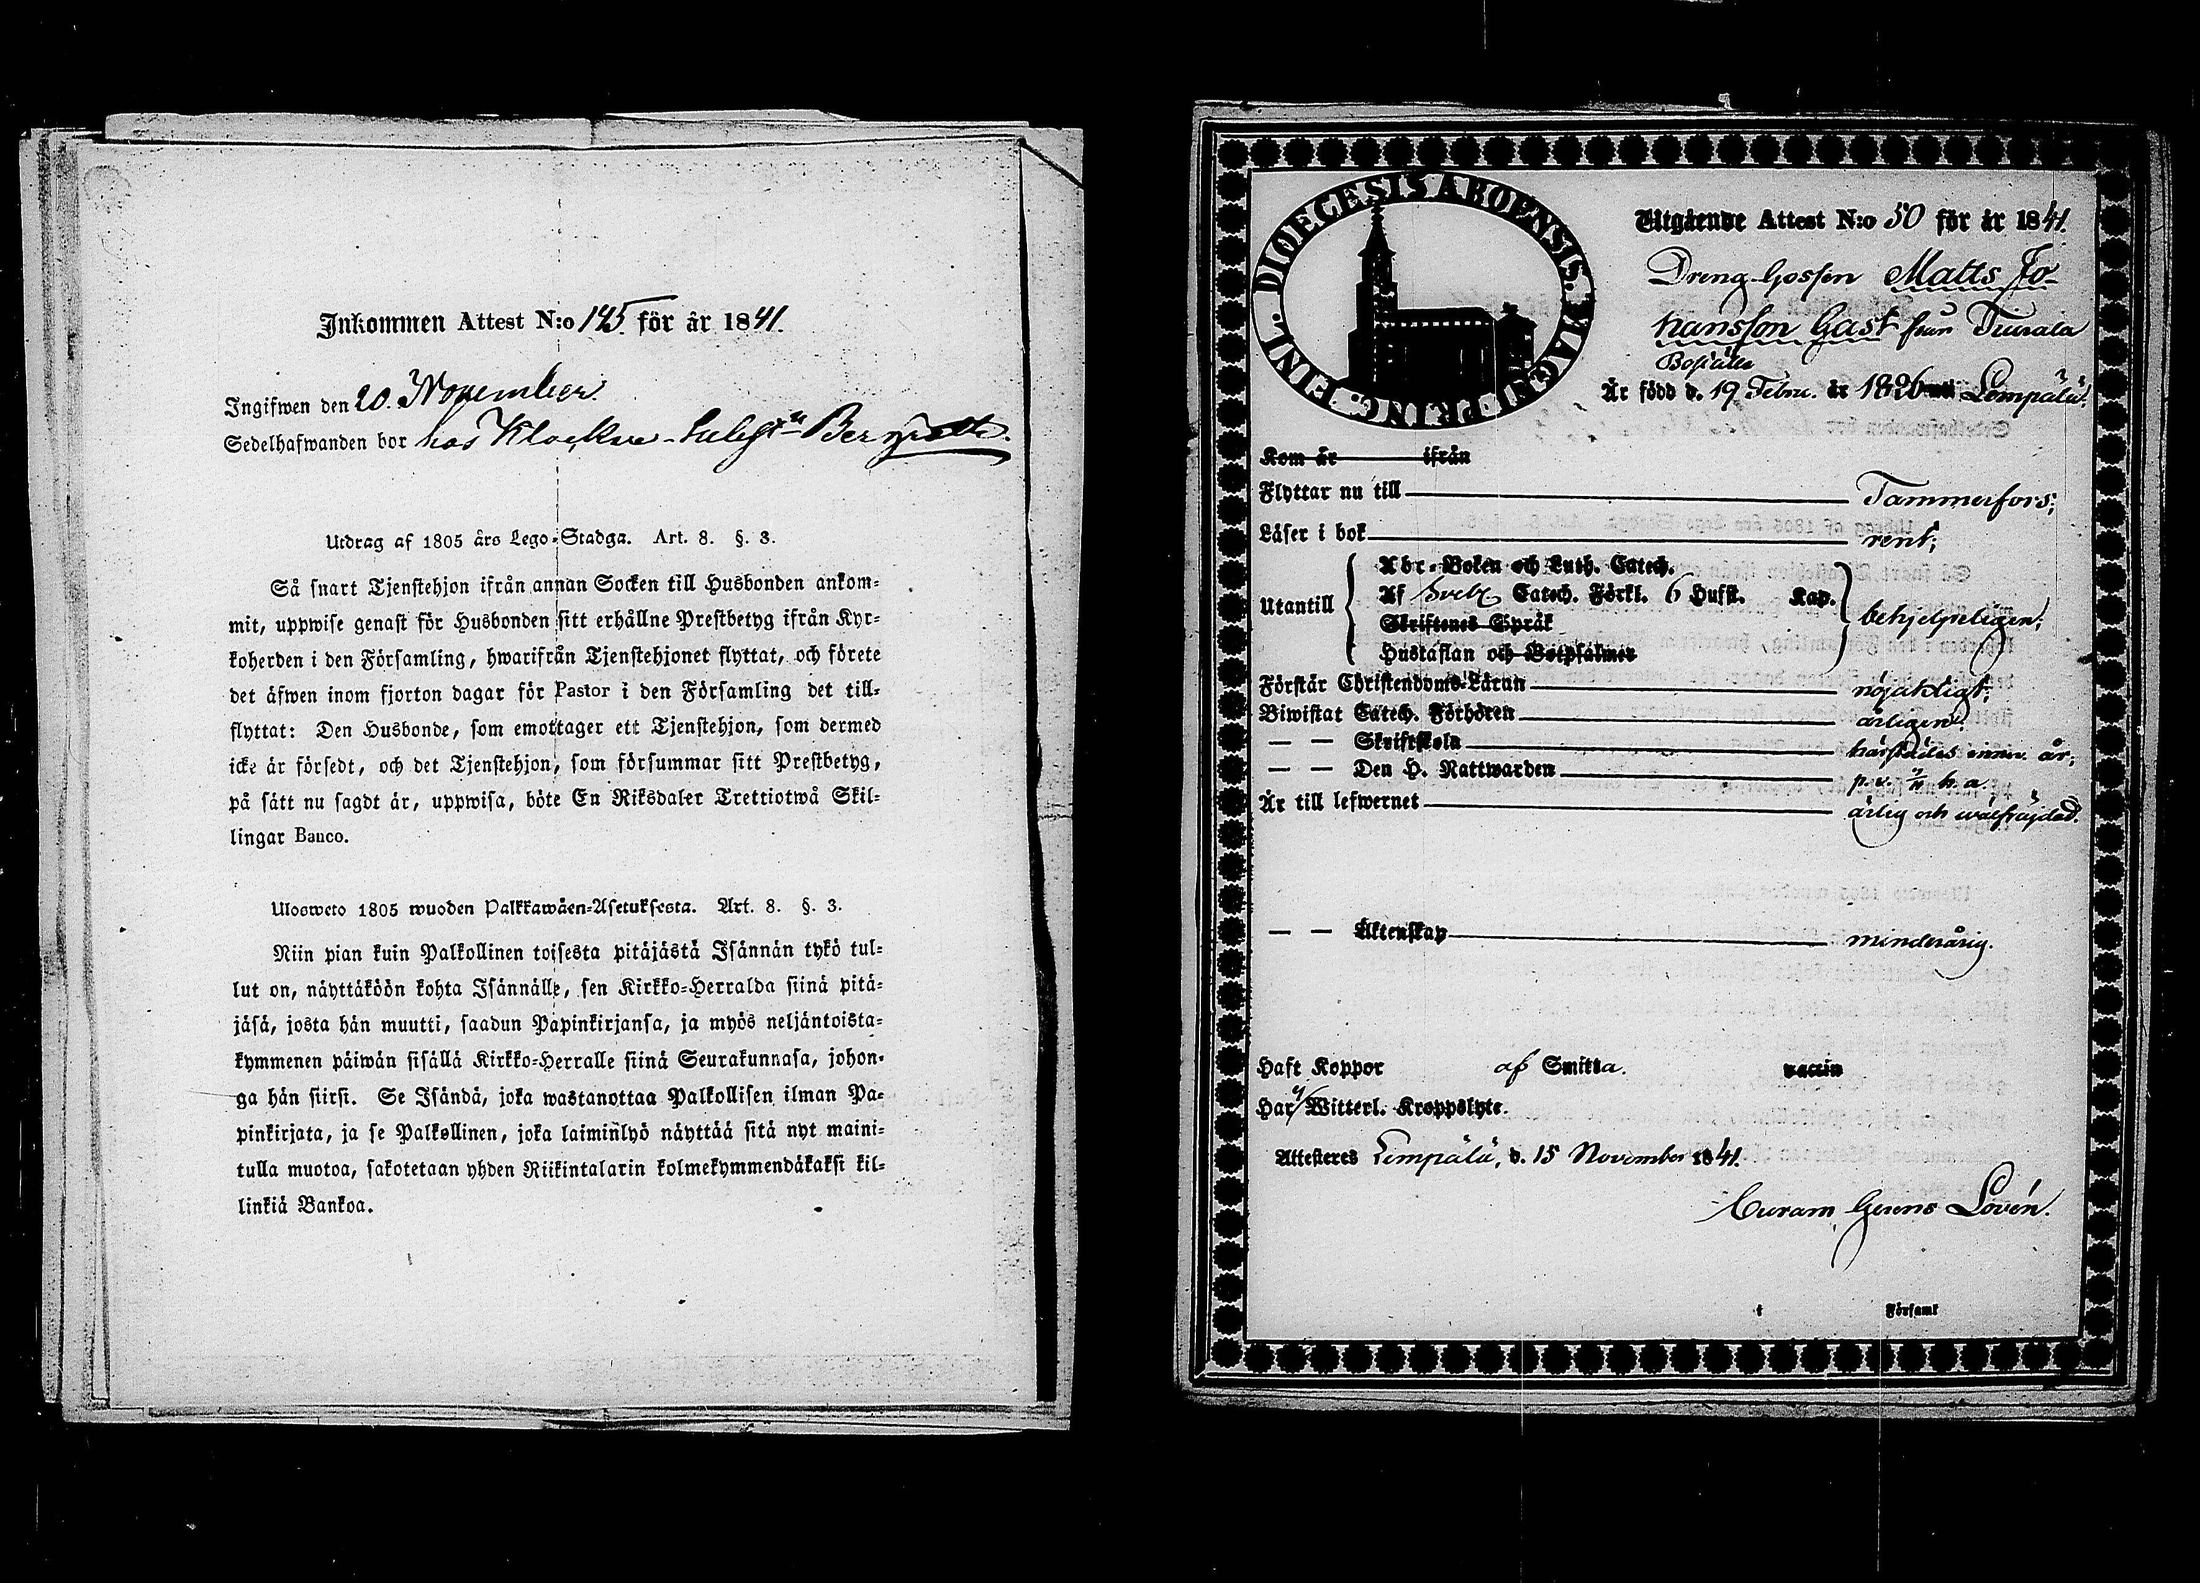 Inkommen Attest N:o 145. för år 1841.
Ingifwen den 20. November.
Sedelhafwanden bor hos Klockar
Utdrag af 1805 års Lego-Stadga. Art. 8. §. 3.
Så snart Tjenstehjon ifrån annan Socken till Husbonden ankom-
mit, uppwise genast för Husbonden sitt erhållne Prestbetyg ifrån Kyr-
koherden i den Församling, hwarifrån Tjenstehjonet flyttat, och förete
det äfwen inom fjorton dagar för Pastor i den Församling det till-
flyttat: Den Husbonde, som emottager ett Tjenstehjon, som dermed
icke är försedt, och det Tjenstehjon, som försummar sitt Prestbetyg,
på sätt nu sagdt är, uppwisa, böte En Riksdaler Trettiotwå Skil-
lingar Banco.
Ulosweto 1805 wuoden Palkkawäen-Asetuksesta. Art. 8. §. 3.
Niin pian kuin Palkollinen toisesta pitäjästä Isännän tykö tul-
lut on, näyttäköön kohta Isännälle, sen Kirkko-Herralda siinä pitä-
jäsä, josta hän muutti, saadun Papinkirjansa, ja myös neljäntoista-
kymmenen päiwän sisällä Kirkko-Herralle siinä Seurakunnasa, johon-
ga hän siirsi. Se Isändä, joka wastanottaa Palkollisen ilman Pa-
pinkirjata, ja se Palkollinen, joka laiminlyö näyttää sitä nyt maini-
tulla muotoa, sakotetaan yhden Riikintalarin kolmekymmendäkaksi kil-
linkiä Bankoa.
DIOECESIS ABOENSIS. MAGNI PRINC. FINL.
Utgående Attest N:o 50 för år 1841.
Dreng-Gossen Matts Jo-
hansson Gast från Tiurala
Boställe
Är född d. 19 Febru. år 1826 Lempälä.
Kom år ifrån
Flyttar nu till Tammerfors;
Läser i bok rent;
Utantill
Abc-Boken och Luth. Catech.
Af Sveb. Catech. Förkl. 6 Hufst. Kap.
Skriftenes Språk
Hustaflan och Botpsalmer
behjelpeligen;
Förstår Christendoms-Läran nöjaktigt;
Biwistat Catech. Förhören årligen;
— — Skriftskola härstädes innev. år;
— — Den H. Nattwarden h. a.
Är till lefwernet ärlig och wälfräjdad.
— — Äktenskap minderårig.
Haft Koppor af Smitta. vaccin
Har Witterl. Kroppslyte.
Attesteres Lempälä, d. 15 November 1841.
Curam Gerens Lovén.
i Församl